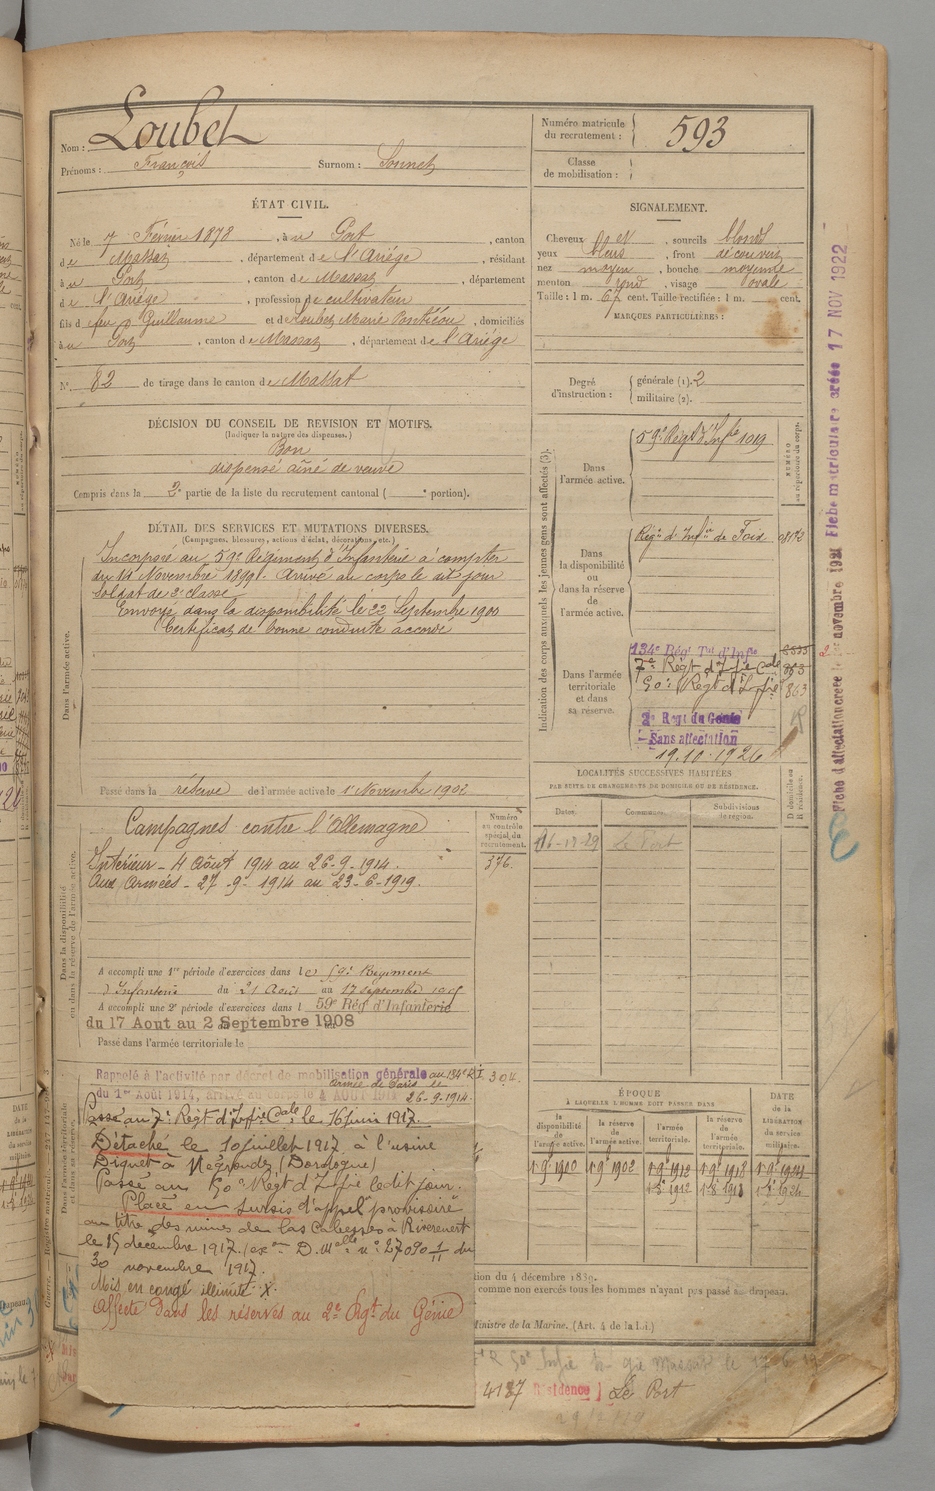 Nom : Loubet
Prénoms : François Surnom : Sonnet
Numéro matricule du recrutement : 593
Classe de mobilisation :
ÉTAT CIVIL.
Né le 7 Février 1878, à Port, canton
de Massat, département de l'Ariège, résidant
à Port, canton de Massat, département
de l'Ariège, profession de cultivateur
fils de feu Guillaume et de Loubet Marie, domiciliés
à Port, canton de Massat, département de l'Ariège
N° 82 de tirage dans le canton de Massat
SIGNALEMENT.
Cheveux, sourcils blonds
yeux bleus, front découvert
nez moyen, bouche moyenne
menton rond, visage ovale
Taille : 1 m. 67 cent. Taille rectifiée : 1 m. cent.
MARQUES PARTICULIÈRES :
Degré d'instruction : générale (1). 2
militaire (2).
DÉCISION DU CONSEIL DE REVISION ET MOTIFS.
(Indiquer la nature des dispenses.)
Bon
dispensé aîné de veuve
Compris dans la 2e partie de la liste du recrutement cantonal ( e portion).
DÉTAIL DES SERVICES ET MUTATIONS DIVERSES.
(Campagnes, blessures, actions d'éclat, décorations, etc.)
Dans l'armée active.
Incorporé au 59e Régiment d'Infanterie à compter
du 14 Novembre 1899. Arrivé au corps le dit jour
Soldat de 2e classe
Envoyé dans la disponibilité le 22 Septembre 1900
Certificat de bonne conduite accordé
Passé dans la réserve de l'armée active le 1er Novembre 1902
Indication des corps auxquels les jeunes gens sont affectés (3).
NUMÉRO au répertoire du corps.
Dans l'armée active.
59e Régt d'Infie 1019
Dans la disponibilité ou dans la réserve de l'armée active.
Régt d'Infie de Foix
Dans l'armée territoriale et dans sa réserve.
134e Régt Tal d'Infie
7e Régt d'Infie Cale 863
50e Régt d'Infie 863
2e Regt du Génie
Sans affectation
19.10.1926
Fiche matriculaire créée 17 NOV 1922
Fiche d'affectation créée le novembre 1921
LOCALITÉS SUCCESSIVES HABITÉES
PAR SUITE DE CHANGEMENTS DE DOMICILE OU DE RÉSIDENCE.
Dates. Communes. Subdivisions de région. D domicile ou R résidence.
Le Port
Dans la disponibilité ou dans la réserve de l'armée active.
Campagnes contre l'Allemagne
Numéro au contrôle spécial du recrutement.
376
Intérieur - 4 Août 1914 au 26-9-1914.
Aux Armées - 27-9-1914 au 23-6-1919.
A accompli une 1re période d'exercices dans le 59e Régiment
d'Infanterie du 21 Août au 17 septembre 1905
A accompli une 2e période d'exercices dans l 59e Rég d'Infanterie
du 17 Aout au 2 Septembre 1908
Passé dans l'armée territoriale le
Rappelé à l'activité par décret de mobilisation générale au 134e R.I. 304
armée de Paris le
du 1er Août 1914, arrivé au corps le 4 AOUT 1914 26-9-1914.
Passé au 7e Régt d'Infie Cale le 16 juin 1917.
Détaché le 10 juillet 1917 à l'usine
Diguet à Négrondes (Dordogne)
Passé au 50e Régt d'Infie le dit jour.
Placé en sursis d'appel provisoire
au titre des mines de las Cabesses à Rivèrenert
le 15 décembre 1917. D. Mlle n° 27090 1/11 du
30 novembre 1917.
Mis en congé illimité. X.
Affecté dans les réserves au 2e Rgt du Génie
ÉPOQUE
À LAQUELLE L'HOMME DOIT PASSER DANS
la disponibilité de l'armée active.
la réserve de l'armée active.
l'armée territoriale.
la réserve de l'armée territoriale.
DATE de la LIBÉRATION du service militaire.
tion du 4 décembre 1889.
comme non exercés tous les hommes n'ayant pas passé au drapeau.
Ministre de la Marine. (Art. 4 de la loi.)
4137 Résidence Le Port